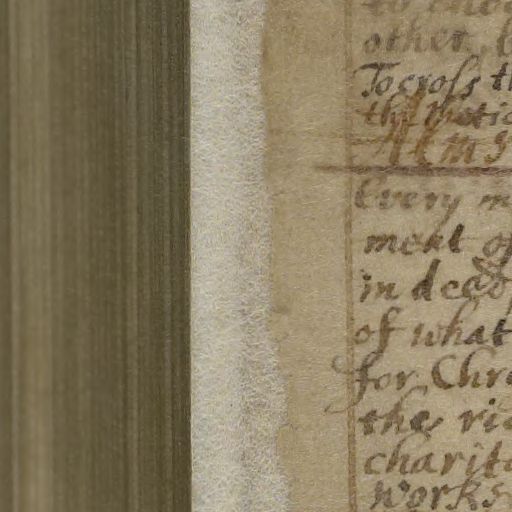 other, b
To cross th
the Motio
Almes
Every m
ment of
in deed,
of what
for Chri
the ric
charita
works